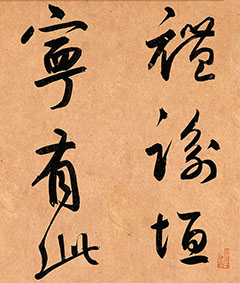 禮踰垣
寧有此